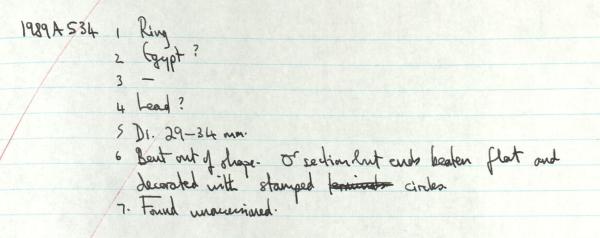 1989AS34 1 Ring
2 Egypt?
3 —
4 Lead?
5 Di. 29–34 mm.
6 Bent out of shape. O section but ends beaten flat and
decorated with stamped circles.
7. Found unaccessioned.